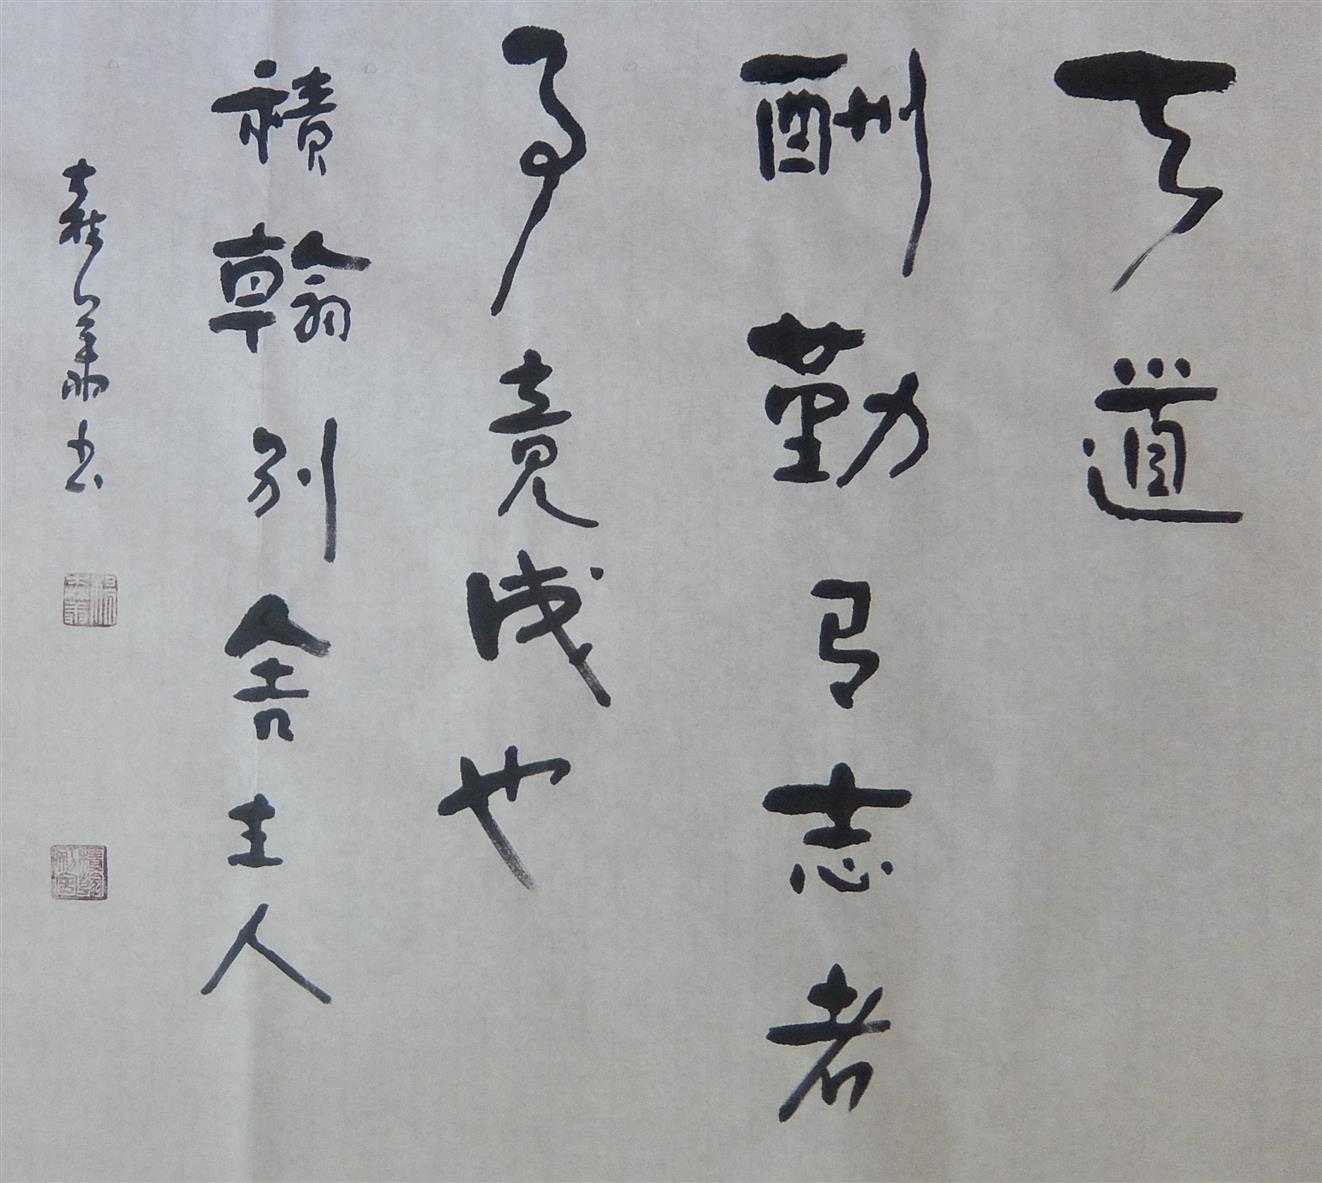 天道
酬勤有志者
事竟成也
積翰別舍主人
書